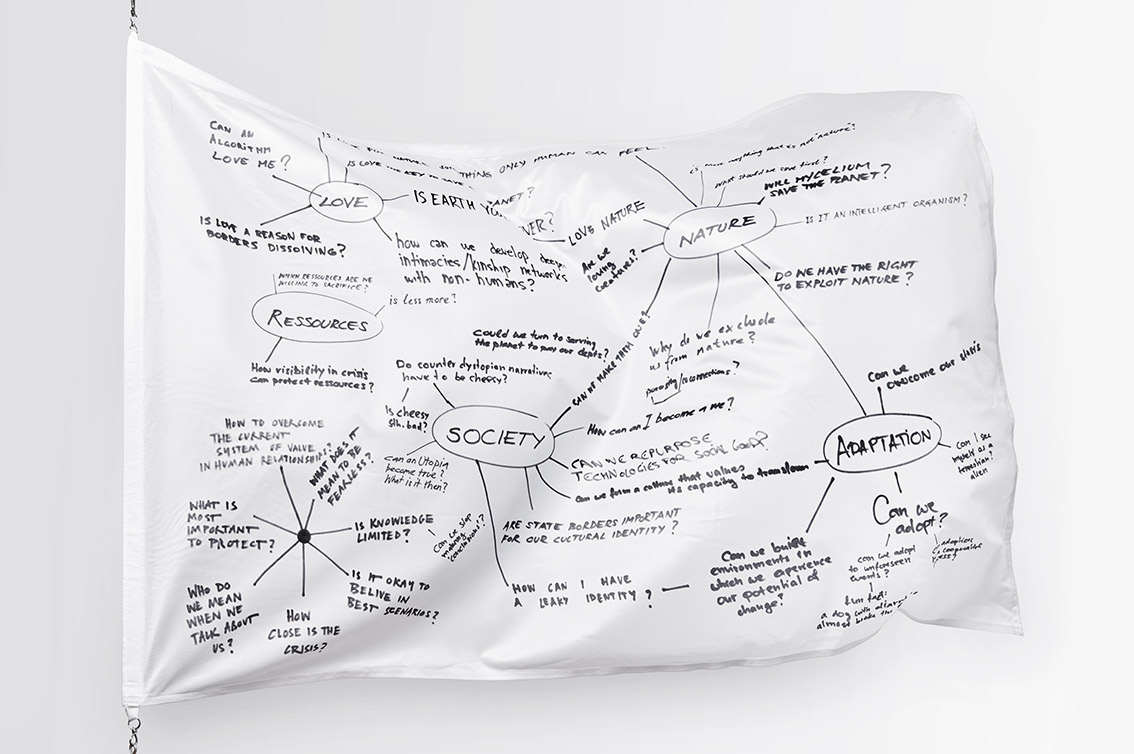 CAN AN
ALGORITHM
LOVE ME?
THING ONLY HUMAN CAN FEEL
IS LOVE THE KEY TO
IS EARTH
LOVE
IS LOVE A REASON FOR
BORDERS DISSOLVING?
how can we develop deep
intimacies/kinship networks
with non-humans?
LOVE NATURE
Are we
loving
creatures?
NATURE
is there anything that is not "nature"?
What should we save first?
WILL MYCELIUM
SAVE THE PLANET?
IS IT AN INTELLIGENT ORGANISM?
DO WE HAVE THE RIGHT
TO EXPLOIT NATURE?
Why do we exclude
us from nature?
CAN WE MAKE THEM ONE?
WHICH RESSOURCES ARE WE
WILLING TO SACRIFICE?
is less more?
RESSOURCES
How visibility in crisis
can protect ressources?
Could we turn to serving
the planet to pay our depts?
Do counter dystopian narratives
have to be cheesy?
Is cheesy
sth. bad?
can an Utopia
become true?
What is it then?
SOCIETY
How can I become a we?
CAN WE REPURPOSE
TECHNOLOGIES FOR SOCIAL GOOD?
Can we form a culture that values
its capacity to transform
ARE STATE BORDERS IMPORTANT
FOR OUR CULTURAL IDENTITY?
HOW CAN I HAVE
A LEAKY IDENTITY?
Can we built
environments in
which we experience
our potential of
change?
ADAPTATION
Can we
overcome our
can I see
myself as a
alien
Can we
adapt?
can we adapt
to unforeseen
events?
fun fact:
a dog with
almost
HOW TO OVERCOME
THE CURRENT
SYSTEM OF VALUE
IN HUMAN RELATIONSHIPS?
WHAT DOES IT
MEAN TO BE
FEARLESS?
WHAT IS
MOST
IMPORTANT
TO PROTECT?
IS KNOWLEDGE
LIMITED?
Can we stop
making
conclusions?
IS IT OKAY TO
BELIVE IN
BEST SCENARIOS?
WHO DO
WE MEAN
WHEN WE
TALK ABOUT
US?
HOW
CLOSE IS THE
CRISIS?